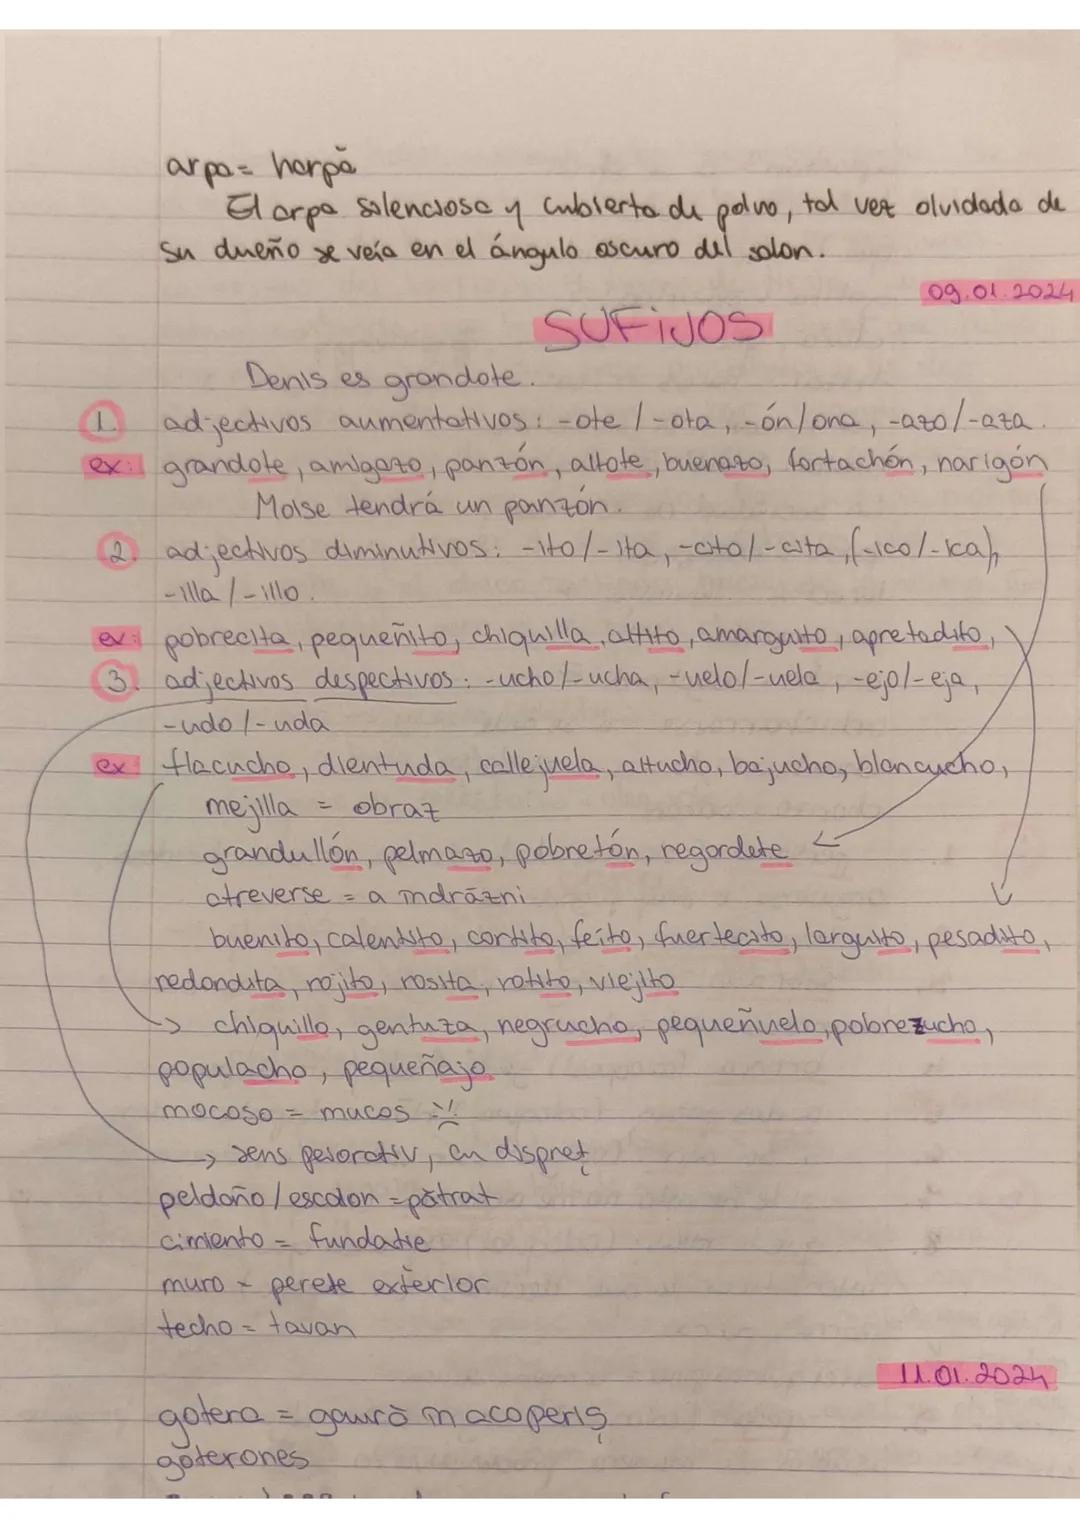 arpa = harpă
El arpa silenciosa y cubierta de polvo, tal vez olvidada de
su dueño se veía en el ángulo oscuro del salon.
09.01.2024
SUFIJOS
Denis es grandote.
1. adjectivos aumentativos: -ote / -ota, -ón/ona, -azo/-aza.
ex: grandote, amigazo, panzón, altote, buenazo, fortachón, narigón
Moise tendrá un panzón.
2. adjectivos diminutivos: -ito/-ita, -cito/-cita, (-ico/-ica),
-illa / -illo.
ex: pobrecita, pequeñito, chiquilla, altito, amarguito, apretadito,
3. adjectivos despectivos: -ucho/-ucha, -uelo/-uela, -ejo/-eja,
-udo /-uda
ex: flacucho, dientuda, callejuela, altucho, bajucho, blancucho,
mejilla = obraz
grandullón, pelmazo, pobretón, regordete
atreverse = a îndrăzni
buenito, calentito, cortito, feíto, fuertecito, larguito, pesadito,
redondita, rojito, rosita, rotito, viejito
chiquillo, gentuza, negrucho, pequeñuelo, pobrezucho,
populacho, pequeñajo
mocoso = mucos
sens peiorativ, cu dispreț
peldaño / escalon = pătrat
cimiento = fundație
muro = perete exterior
techo = tavan
11.01.2024
gotera = gaură în acoperiș
goterones